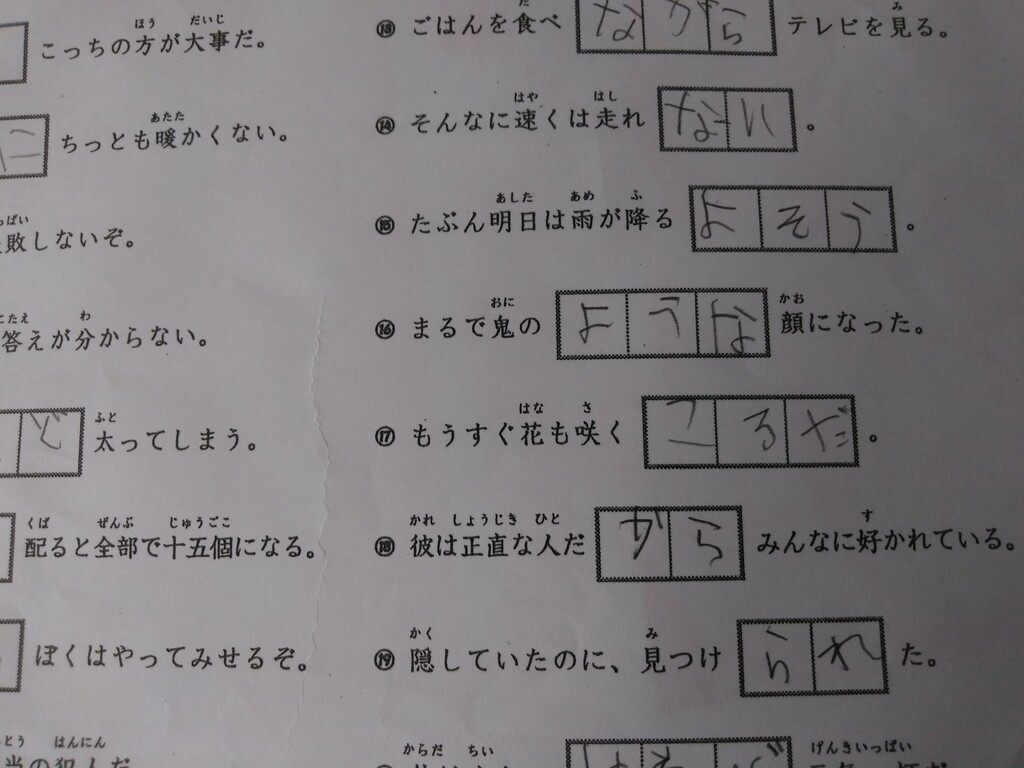 ほう だいじ
こっちの方が大事だ。
あたた
に ちっとも暖かくない。
っぱい
敗しないぞ。
こたえ わ
答えが分からない。
ふと
ど 太ってしまう。
くば ぜんぶ じゅうごこ
配ると全部で十五個になる。
ぼくはやってみせるぞ。
とう はんにん
当の犯人だ
た み
⑬ ごはんを食べ ながら テレビを見る。
はや はし
⑭ そんなに速くは走れ ない 。
あした あめ ふ
⑮ たぶん明日は雨が降る よそう 。
おに かお
⑯ まるで鬼の ような 顔になった。
はな さ
⑰ もうすぐ花も咲く ころだ 。
かれ しょうじき ひと す
⑱ 彼は正直な人だ から みんなに好かれている。
かく み
⑲ 隠していたのに、見つけ られ た。
からだ ちい げんきいっぱい